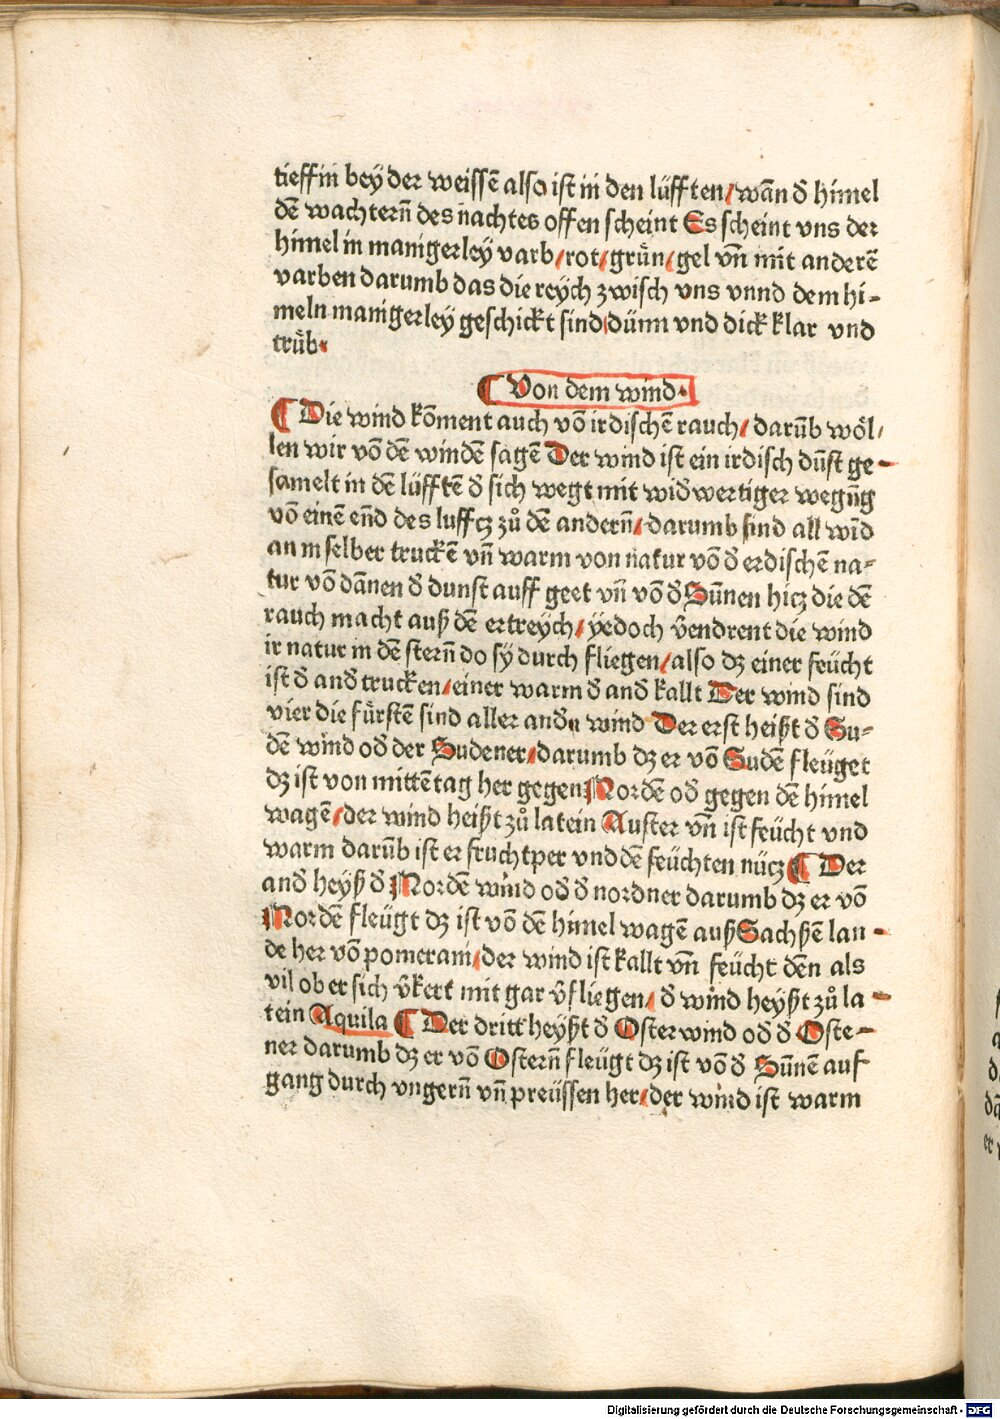 tieffin bey der weissē also ist in den lüfften/wān ð himel
dē wachterñ des nachtes offen scheint Es scheint vns der
himel in manigerley varb/rot/grůn/gel vñ mit anderē
varben darumb das die reych zwisch vns vnnd dem hi-
meln manigerley geschickt sind/dünn vnd dick klar vnd
trůb.
¶ Von dem wind.
¶ Die wind kōment auch vō irdischē rauch/ darūb wöl/
len wir vō dē windē sagē Der wind ist ein irdisch dūst ge-
samelt in dē lüfftē ð sich wegt mit widwertiger wegūg
vō einē end des lufftz zů dē anderñ/darumb sind all wīd
an in selber truckē vñ warm von natur vō ð erdischē na-
tur vō dānen ð dunst auff geet vñ vō ð Sūnen hicz die dē
rauch macht auß dē ertreych/ yedoch v̄endrent die wind
ir natur in dē sterñ do sy durch fliegen/also dz einer feücht
ist ð and̄ trucken/einer warm ð and̄ kallt Der wind sind
vier die fürstē sind aller anð wind Der erst heißt ð Su-
dē wind od̄ der Sudener/darumb dz er vō Sudē fleüget
dz ist von mittētag her gegen Nordē od̄ gegen dē himel
wagē/der wind heißt zů latein Auster vñ ist feücht vnd
warm darūb ist er fruchtper vnd dē feüchten nücz ¶ Der
and̄ heyß ð Nordē wind od̄ ð nordner darumb dz er vō
Nordē fleügt dz ist vō dē himel wagē auß Sachßē lan-
de her vō pomerani/der wind ist kallt vñ feücht dēn als
vil ob er sich v̄kert mit gar v̄fliegen/ ð wind heyßt zů la-
tein Aquila ¶ Der dritt heyßt ð Oster wind od̄ ð Oste-
ner darumb dz er vō Osterñ fleügt dz ist vō ð Sūnē auf
gang durch vngerñ vñ preüssen her/der wind ist warm
Digitalisierung gefördert durch die Deutsche Forschungsgemeinschaft - DFG